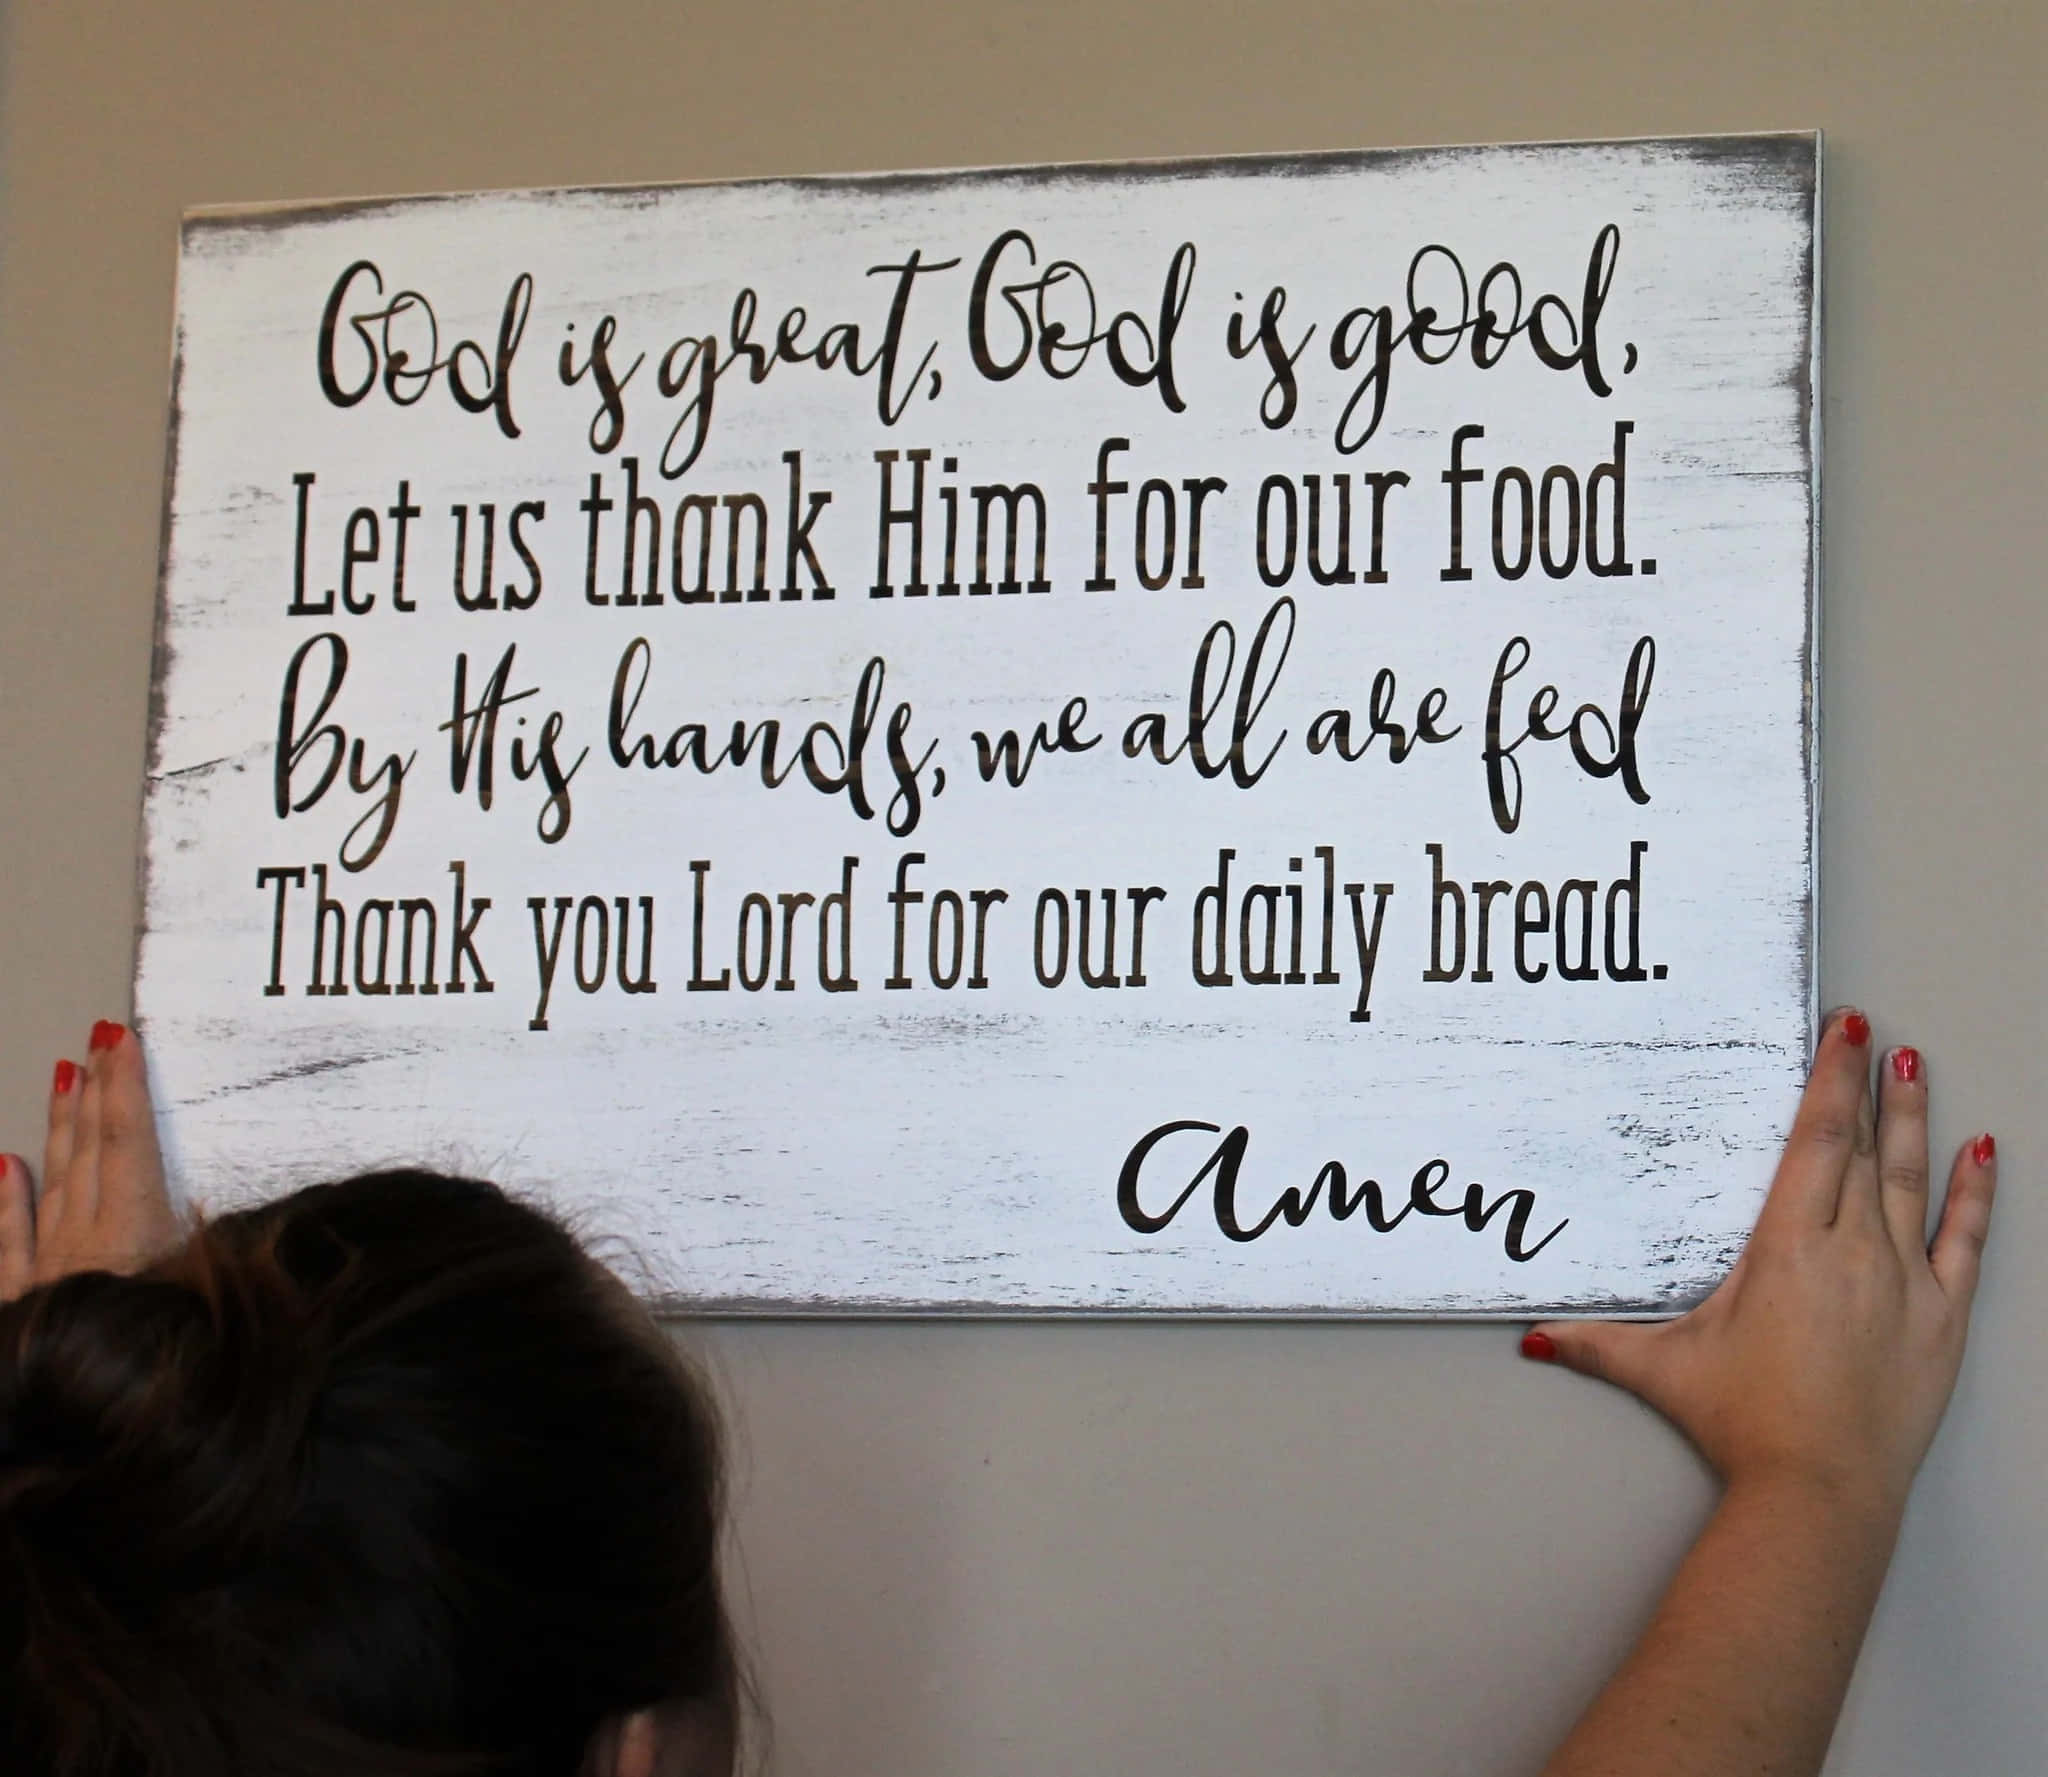 God is great, God is good,
Let us thank Him for our food.
By His hands, we all are fed
Thank you Lord for our daily bread.
Amen